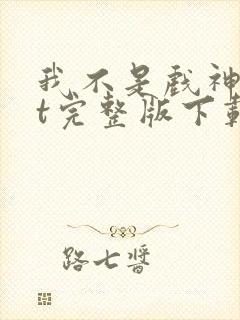 我不是戏神
t完整版下载
路七酱